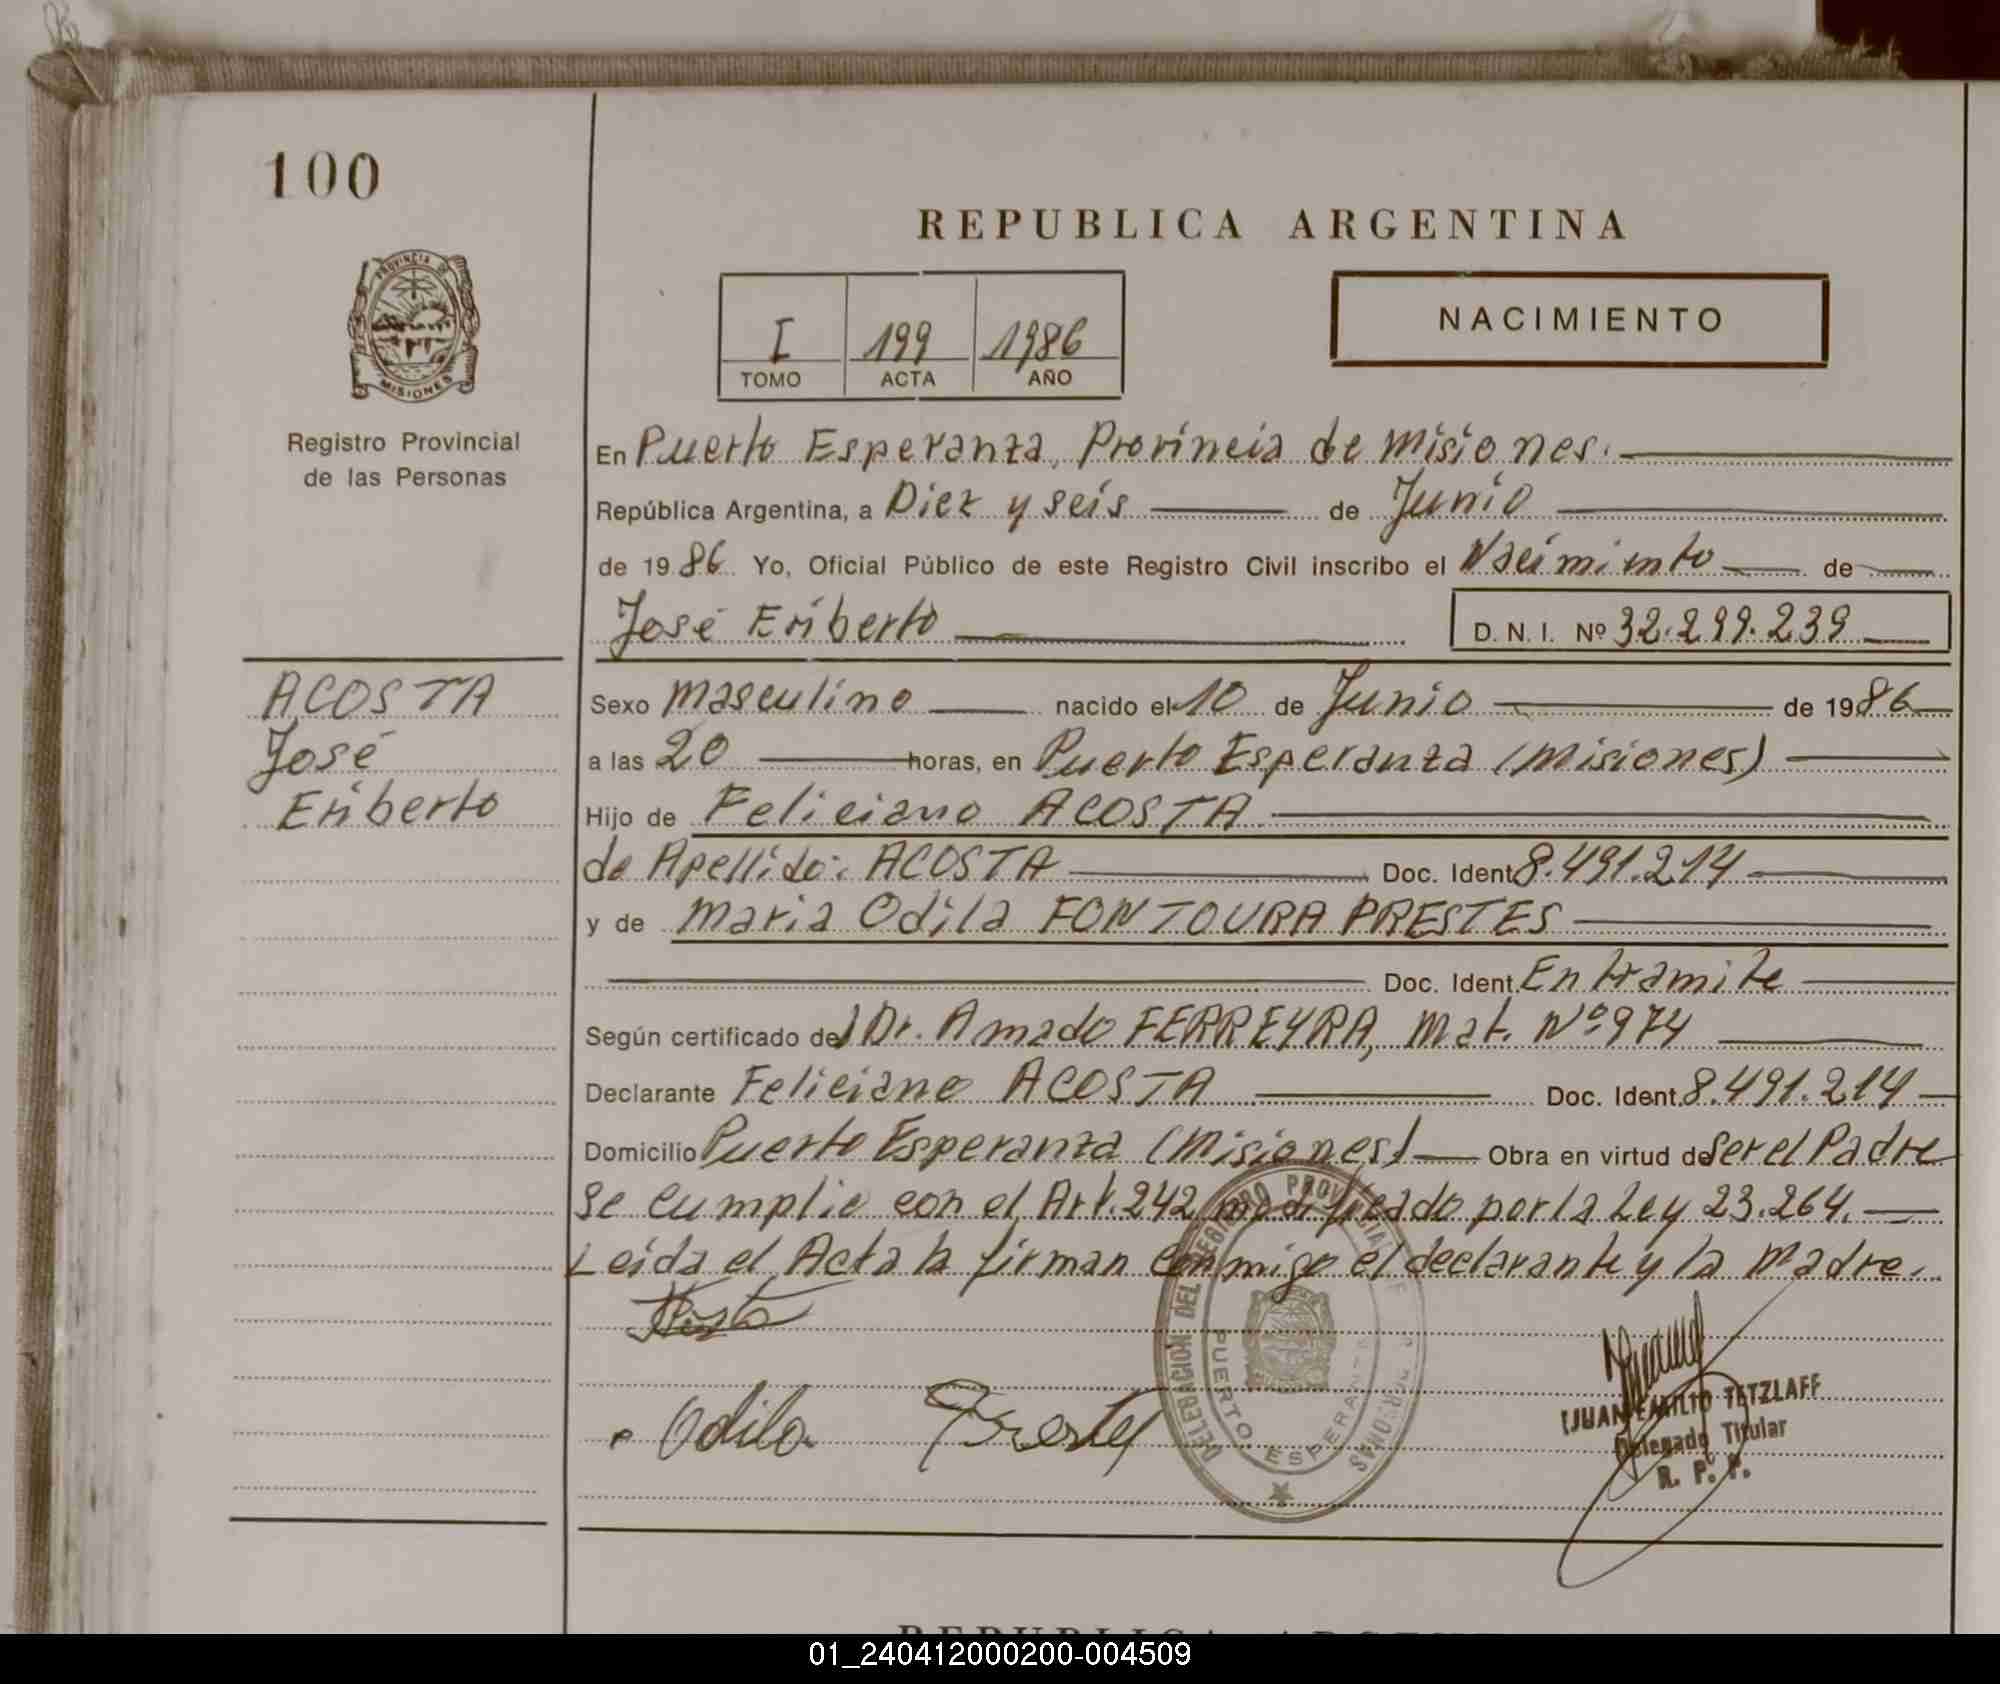 100
REPUBLICA ARGENTINA
PROVINCIA DE
MISIONES
I 199 1986
TOMO ACTA AÑO
NACIMIENTO
Registro Provincial
de las Personas
En Puerto Esperanza, Provincia de Misiones.
República Argentina, a Diez y seis de Junio
de 1986 Yo, Oficial Público de este Registro Civil inscribo el Nacimiento de
José Eriberto D. N. I. Nº 32.299.239
ACOSTA
José
Eriberto
Sexo Masculino nacido el 10 de Junio de 1986
a las 20 horas, en Puerto Esperanza (Misiones)
Hijo de Feliciano ACOSTA
de Apellido: ACOSTA Doc. Ident. 8.491.214
y de Maria Odila FONTOURA PRESTES
Doc. Ident. En tramite
Según certificado del Dr. Amado FERREYRA, Mat. Nº 974
Declarante Feliciano ACOSTA Doc. Ident. 8.491.214
Domicilio Puerto Esperanza (Misiones) Obra en virtud de Ser el Padre
Se cumplio con el Art. 242 modificado por la Ley 23.264.
Leida el Acta la firman conmigo el declarante y la Madre.
Odila Prestes
DELEGACION DEL REGISTRO PROVINCIAL DE PERSONAS
PUERTO ESPERANZA
JUAN EMILIO TETZLAFF
Delegado Titular
R. P. P.
REPUBLICA ARGENTINA
01_240412000200-004509